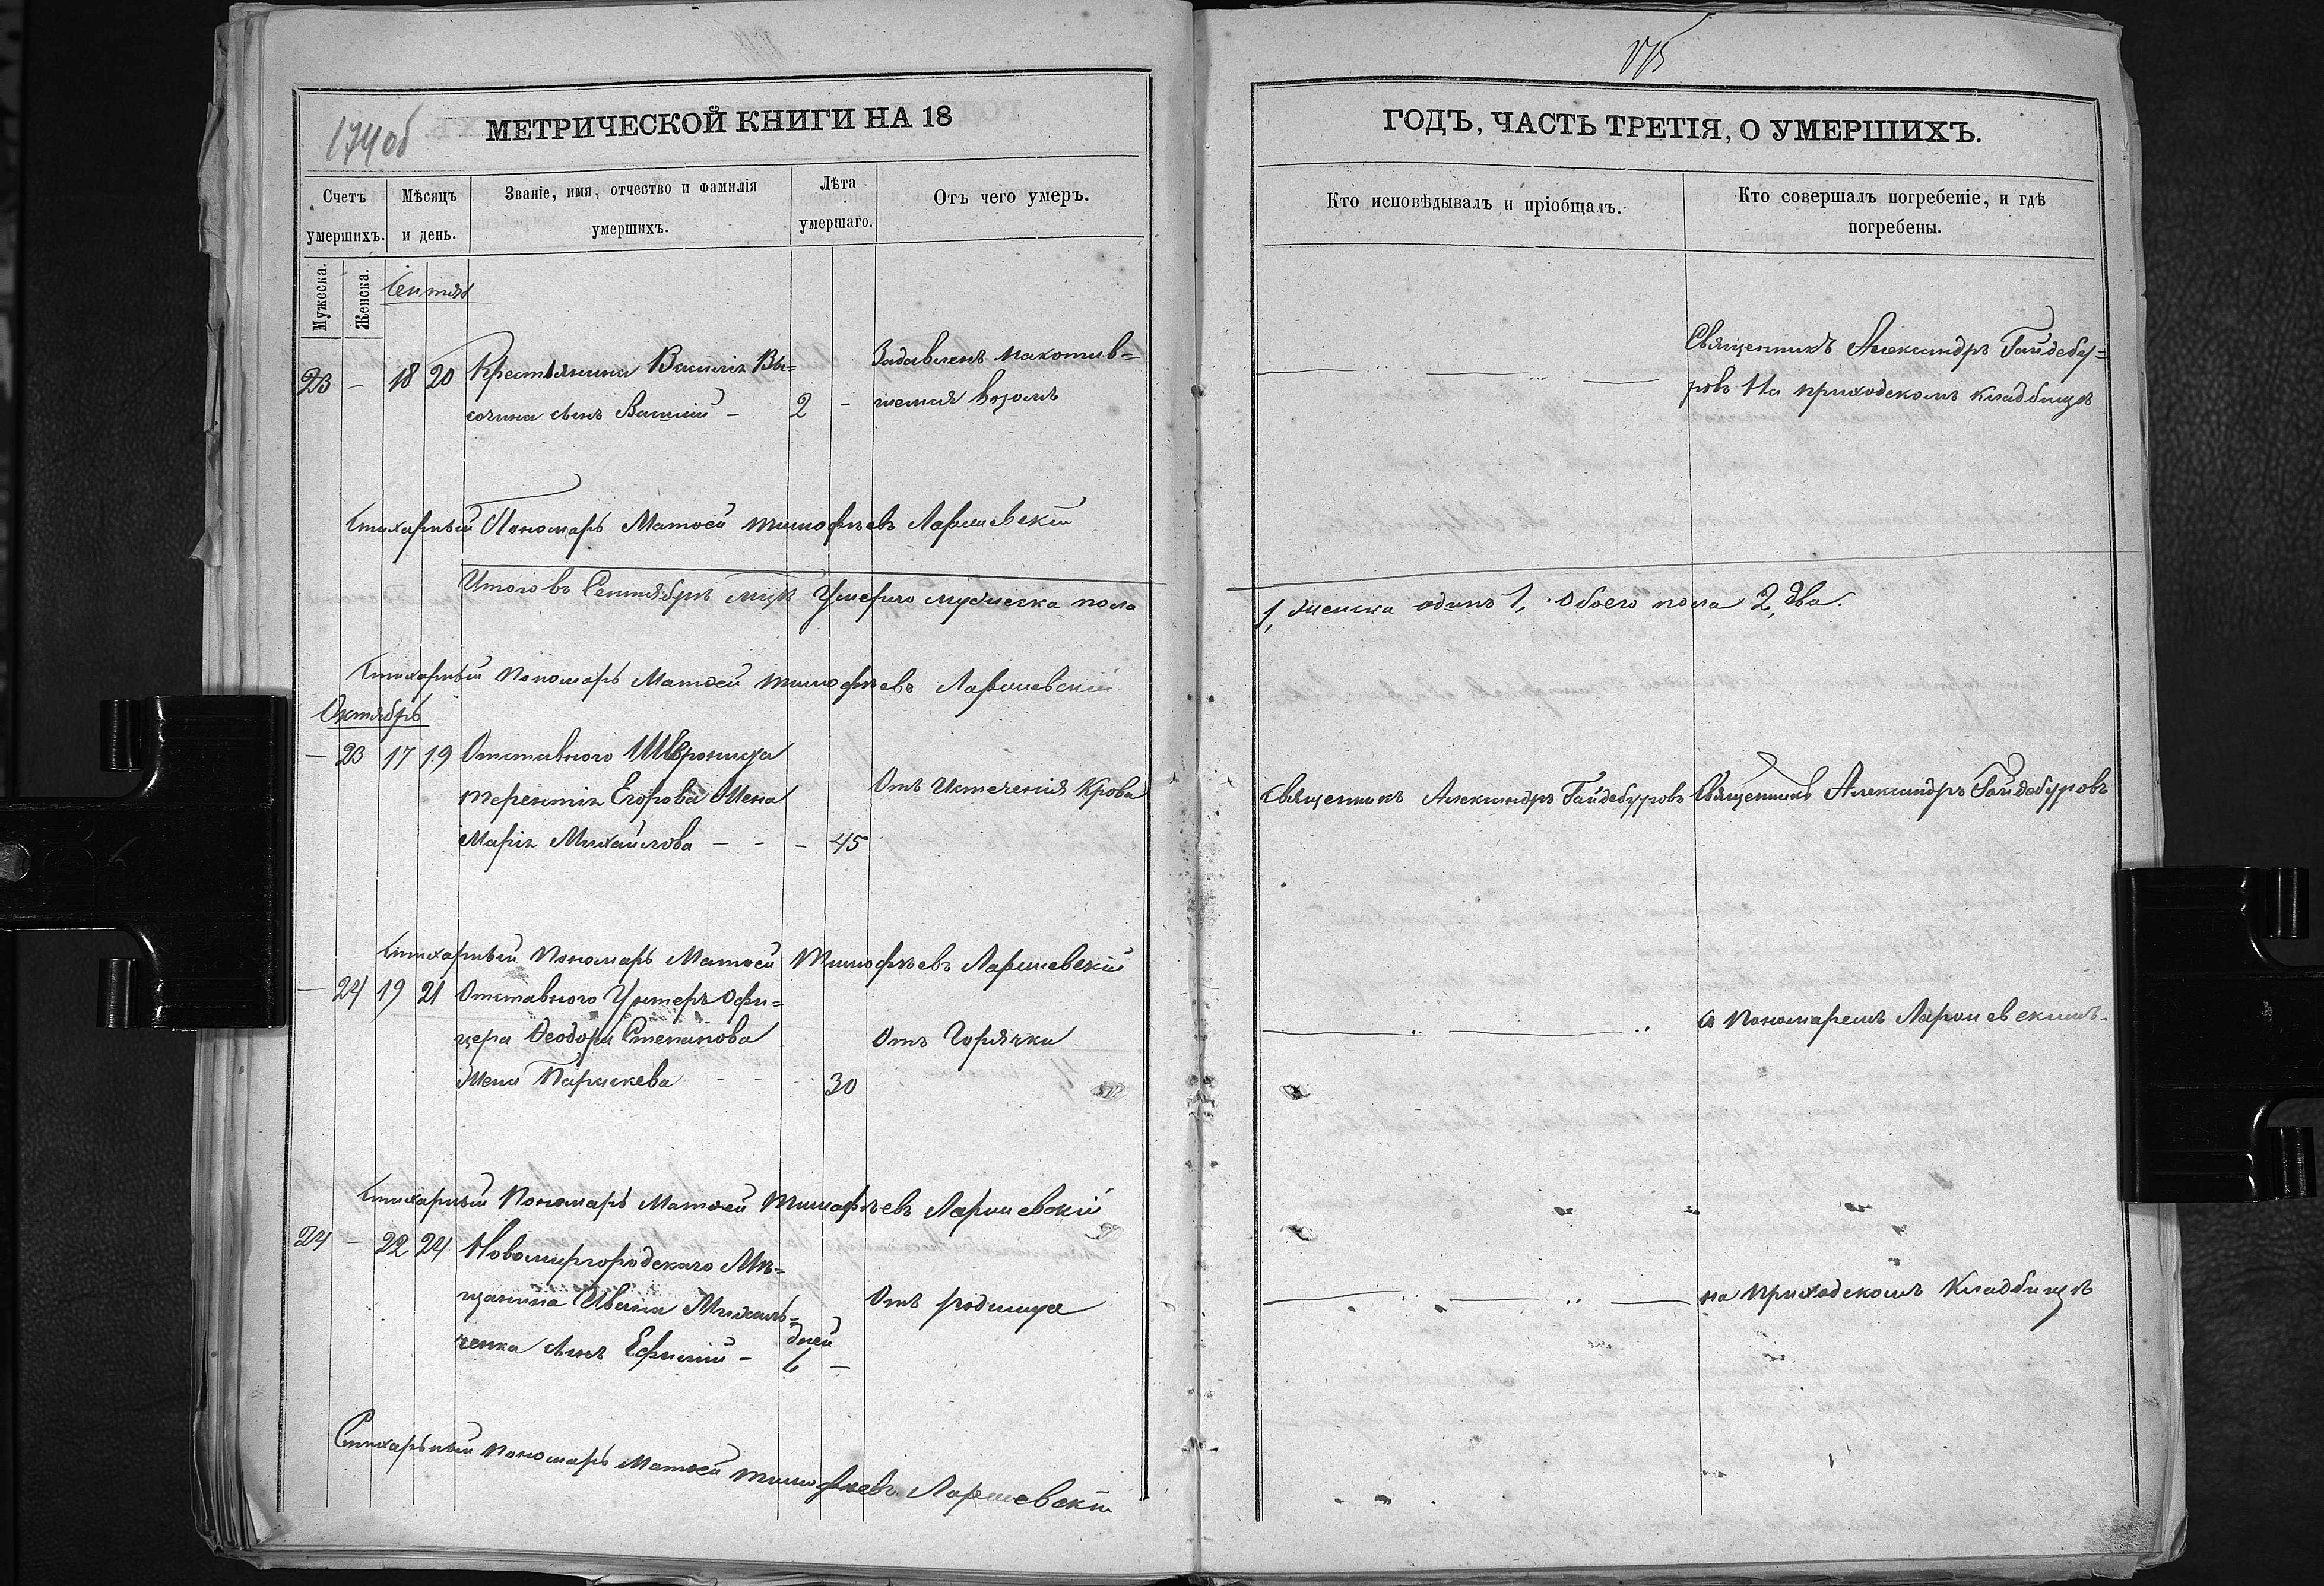 174об
МЕТРИЧЕСКОЙ КНИГИ НА 18
Счетъ умершихъ.
Мѣсяцъ и день.
Званіе, имя, отчество и фамилія умершихъ.
Лѣта умершаго.
Отъ чего умеръ.
Мужеска.
Женска.
Сентяб
23 – 18 20 Крестьянина Василія Вы=
сочина сынъ Василій – 2 –
Задавленъ накотив=
шемся возомъ
Стихарный Пономарь Матѳей Тимофѣевъ Ларшевскій
Итого въ Сентябрѣ мцѣ Умерло мужеска пола
Стихарный Пономарь Матѳей Тимофѣевъ Ларшевскій
Октябрь
– 23 17 19 Отставного
Терентія Егорова Жена
Марія Михайлова – - – 45
Отъ Истеченія Крови
Стихарный Пономарь Матѳей Тимофѣевъ Ларшевскій
– 24 19 21 Отставного Унтеръ Офи=
цера Ѳеодора Степанова
Жена Параскева - - - 30
Отъ Горячки
Стихарный Пономарь Матѳей Тимофѣевъ Ларшевскій
24 – 22 24 Новомиргородскаго Мѣ=
щанина Ивана Михаль=
ченка сынъ Ефимій – дней 6 –
Отъ родимца
Стихарный Пономарь Матѳей Тимофѣевъ Ларшевскій
175
ГОДЪ, ЧАСТЬ ТРЕТІЯ, О УМЕРШИХЪ.
Кто исповѣдывалъ и пріобщалъ.
Кто совершалъ погребеніе, и гдѣ
погребены.
Священникъ Александръ Гайдебу=
ровъ На приходскомъ кладбищѣ
1, женска одинъ 1, Обоего пола 2, два.
Священникъ Александръ Гайдебуровъ
Священникъ Александръ Гайдебуровъ
съ Пономаремъ Ларшевскимъ
на приходскомъ Кладбищѣ